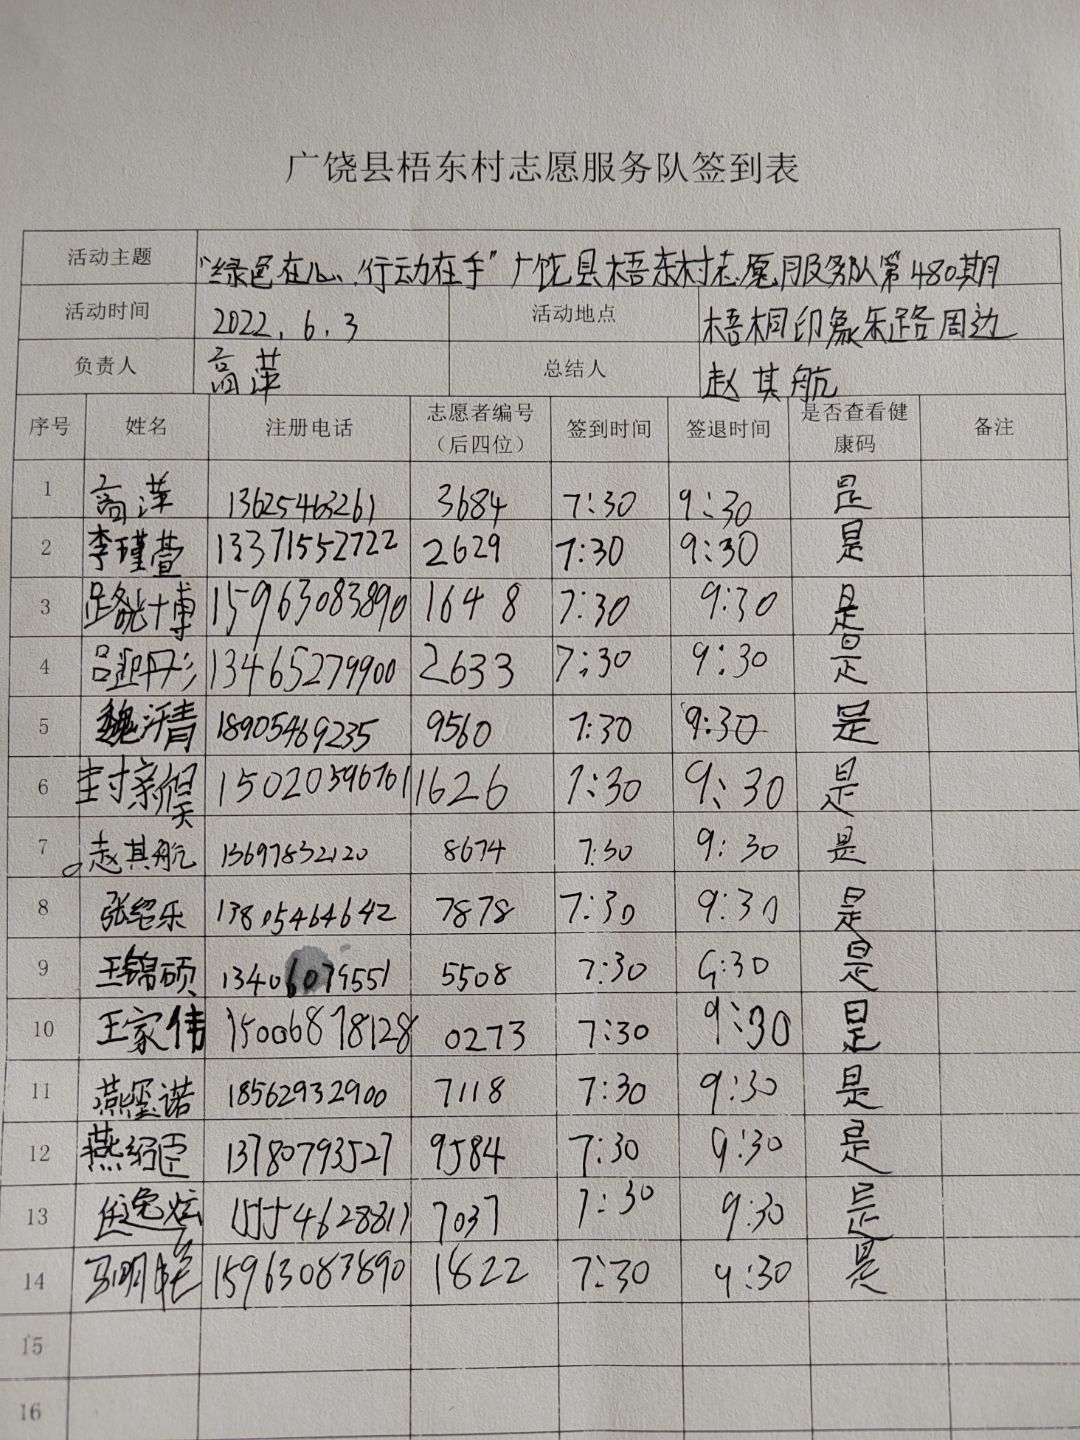 广饶县梧东村志愿服务队签到表
活动主题 “绿色在心、行动在手”广饶县梧东村志愿服务队第480期
活动时间 2022.6.3 活动地点 梧桐印象东路周边
负责人 高萍 总结人 赵其航
序号 姓名 注册电话 志愿者编号（后四位） 签到时间 签退时间 是否查看健康码 备注
1 高萍 13625463261 3684 7:30 9:30 是
2 李瑾萱 13371552722 2629 7:30 9:30 是
3 路 博 15963083890 1648 7:30 9:30 是
4 吕 丹彤 13465279900 2633 7:30 9:30 是
5 魏汧青 18905469235 9560 7:30 9:30 是
6 封亲 昊 15020596761 1626 7:30 9:30 是
7 赵其航 13697832120 8674 7:30 9:30 是
8 张绍乐 13805464642 7878 7:30 9:30 是
9 王锦硕 13406079551 5508 7:30 9:30 是
10 王家伟 15006878128 0273 7:30 9:30 是
11 燕玺诺 18562932900 7118 7:30 9:30 是
12 燕绍臣 13780793527 9584 7:30 9:30 是
13 任逸炫 15554628811 7037 7:30 9:30 是
14 马明 15963083890 1822 7:30 9:30 是
15
16